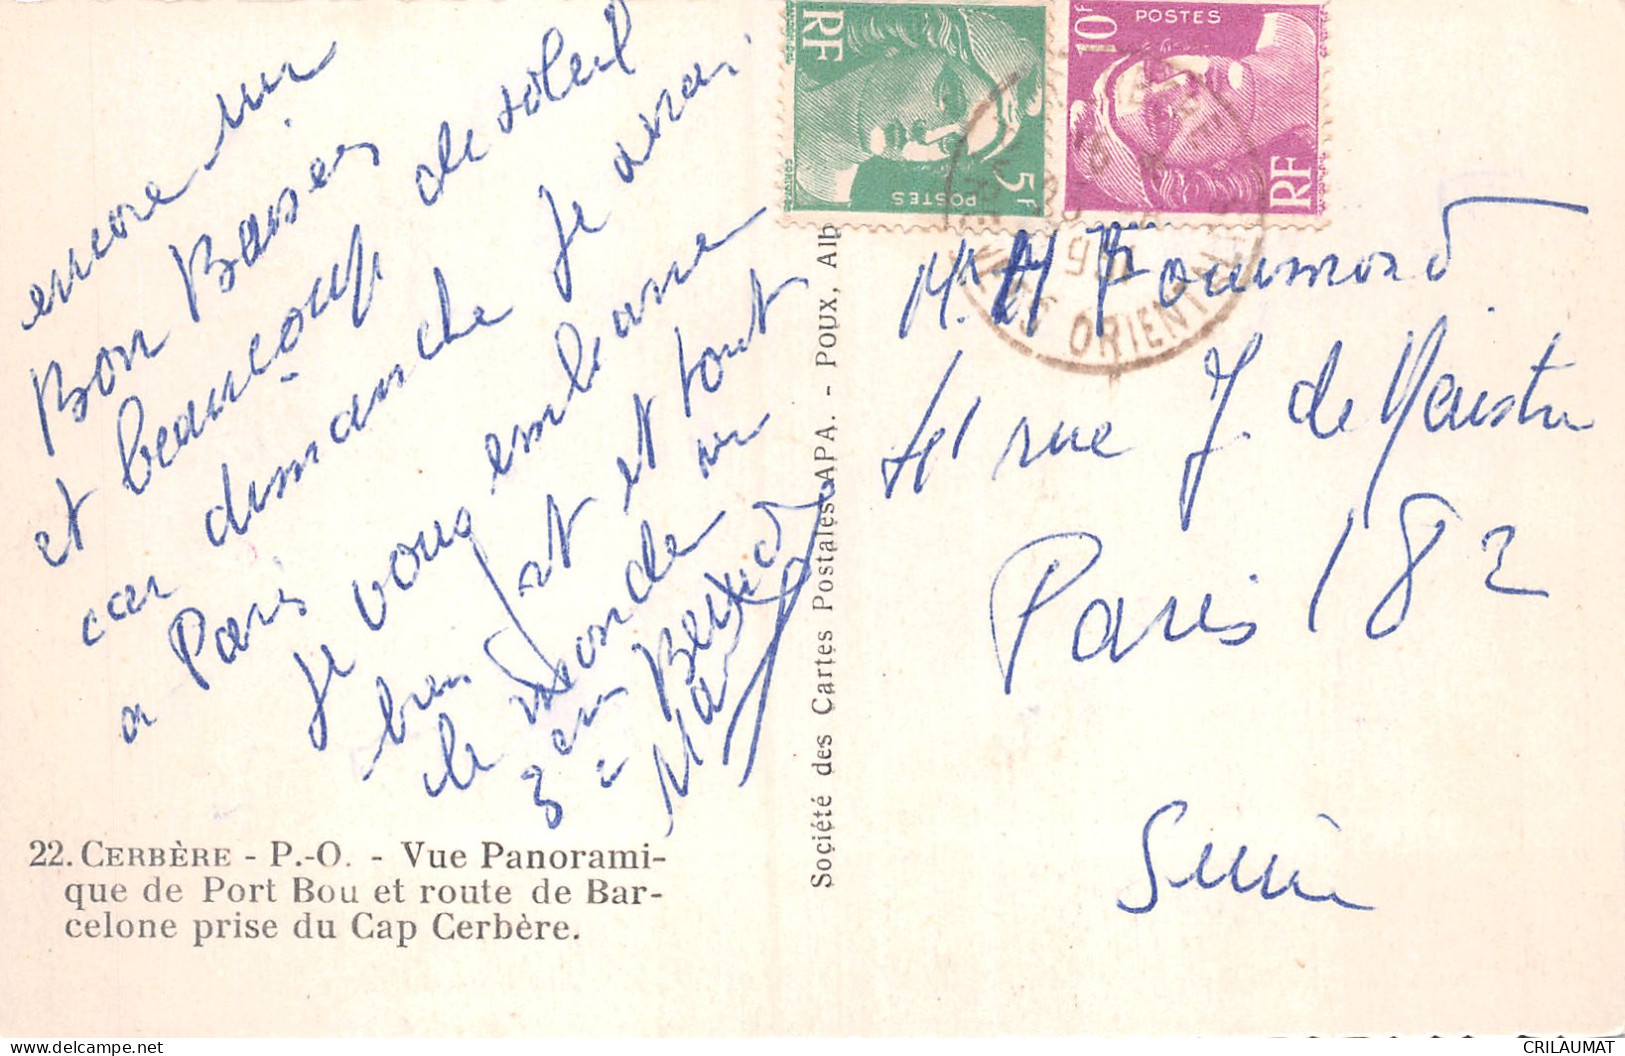 encore un
Bon Baiser
et beaucoup de soleil
car dimanche je serai
a Paris
je vous embrasse
bien et tout
le monde
22. CERBÈRE - P.-O. - Vue Panorami-
que de Port Bou et route de Bar-
celone prise du Cap Cerbère.
Société des Cartes Postales APA. - POUX, Alb
RF
POSTES
5F
10F
POSTES
RF
ORIENTALES
Mr H Fourmond
41 rue J. de Maistre
Paris 18e
Seine
CRILAUMAT